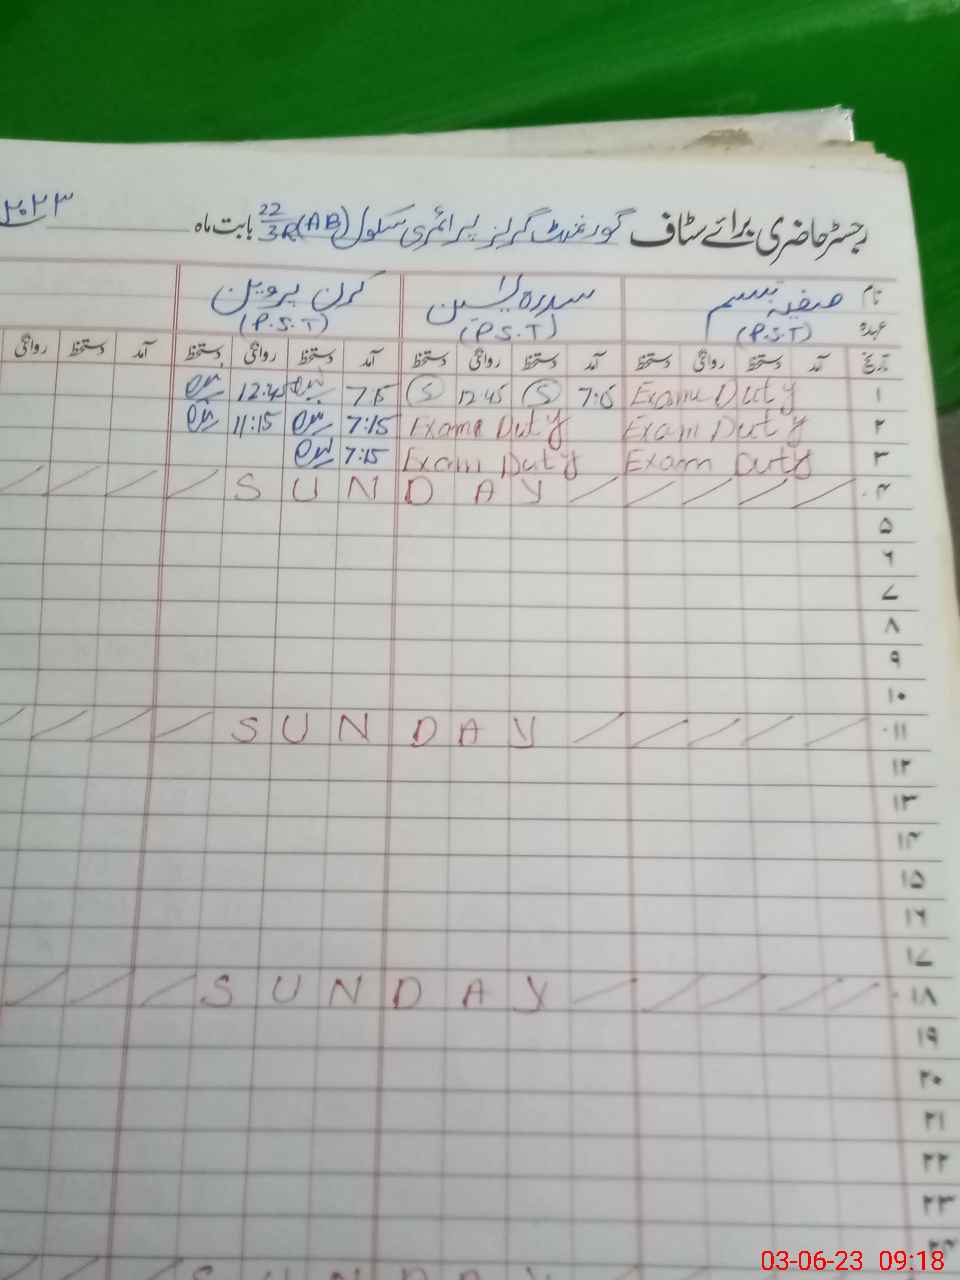 رجسٹر حاضری برائے سٹاف گورنمنٹ گرلز پرائمری سکول 22/3R(AB) بابت ماہ ۲۰۲۳
نام صفیہ تبسم سدرہ یٰسین کرن پروین
عہدہ (P.S.T) (P.S.T) (P.S.T)
تاریخ آمد دستخط روانگی دستخط آمد دستخط روانگی دستخط آمد دستخط روانگی دستخط آمد دستخط روانگی
۱ Exam Duty 7:15 S 12:45 S 7:15 12:45
۲ Exam Duty Exam Duty 7:15 11:15
۳ Exam Duty Exam Duty 7:15
۴ SUNDAY
۵
۶
۷
۸
۹
۱۰
۱۱ SUNDAY
۱۲
۱۳
۱۴
۱۵
۱۶
۱۷
۱۸ SUNDAY
۱۹
۲۰
۲۱
۲۲
۲۳
۲۴
SUNDAY
03-06-23 09:18